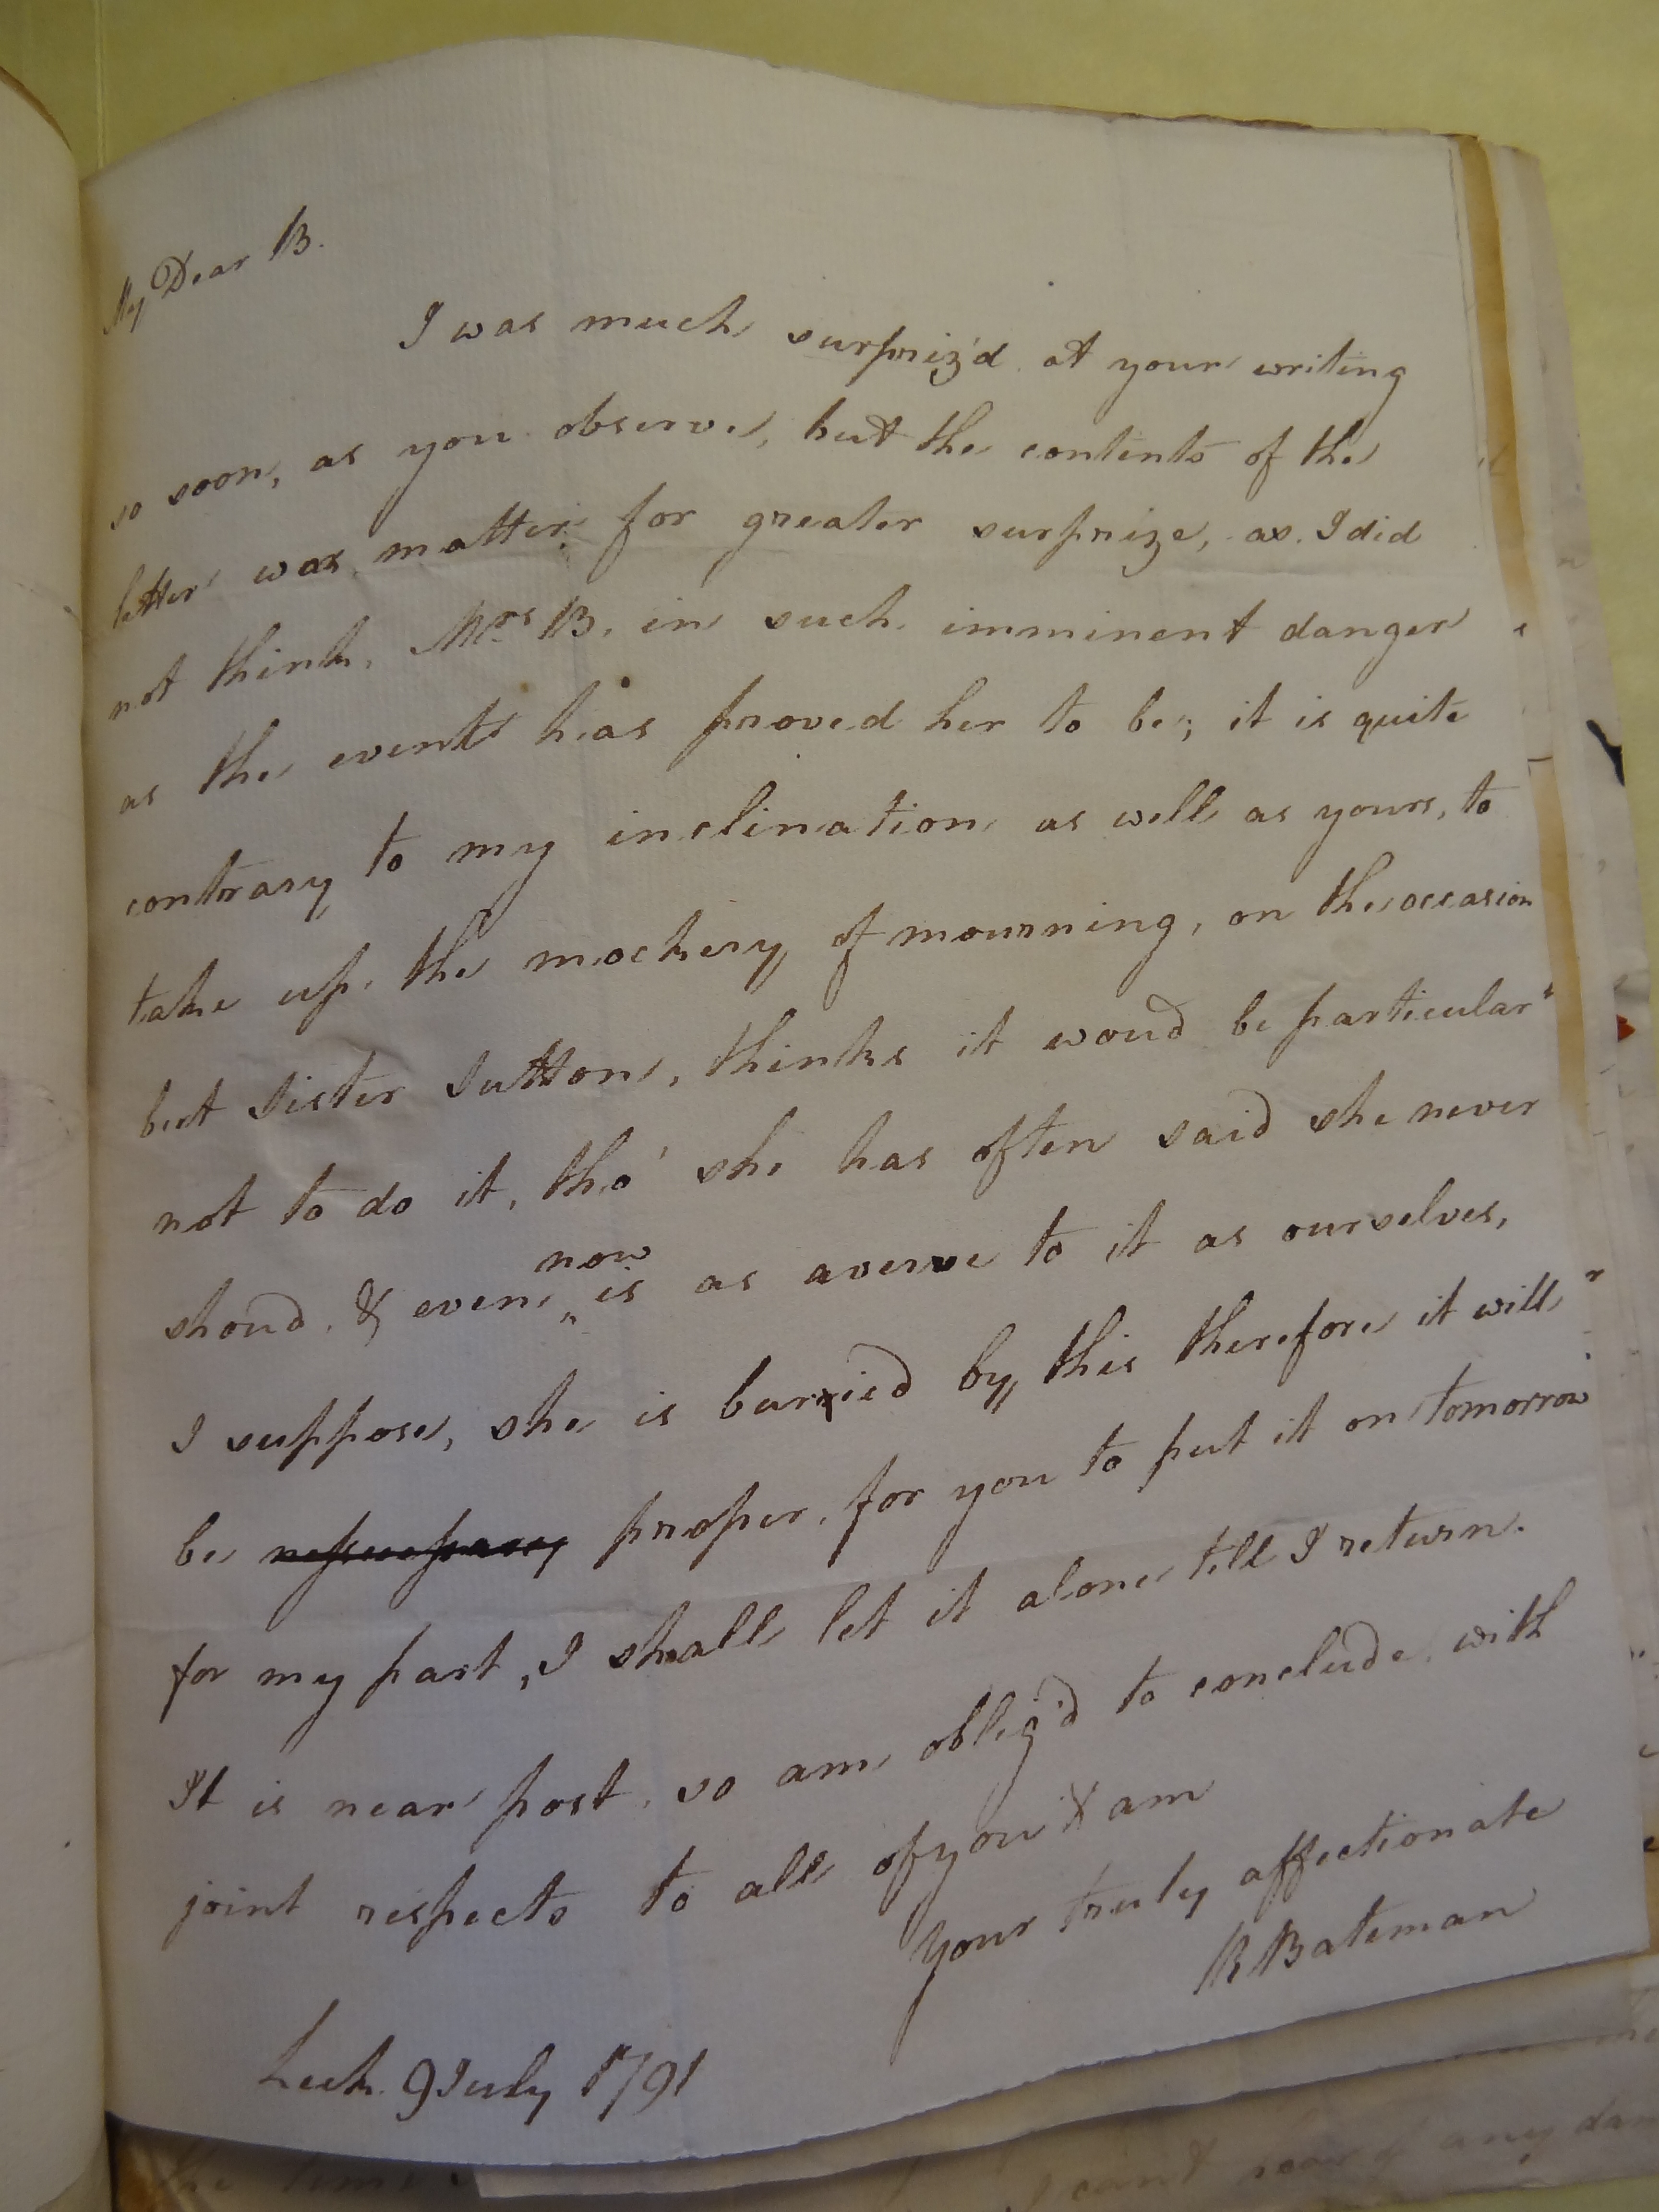 My Dear B.
I was much surpriz'd at your writing
so soon, as you observe, but the contents of the
letter was matter for greater surprize, as I did
not think, Mrs B. in such imminent danger
as the event has proved her to be; it is quite
contrary to my inclination as well as yours, to
take up the mockery of mourning, on the occasion
but Sister Sutton, thinks it woud be particular
not to do it, tho' she has often said she never
shoud, & even now is as averse to it as ourselves,
I suppose, she is burried by this therefore it will
be nessessary proper, for you to put it on tomorrow
for my part, I shall let it alone till I return.
It is near post so am oblig'd to conclude with
joint respects to all of you & am
Your truly affectionate
R Bateman
Leek 9 July 1791